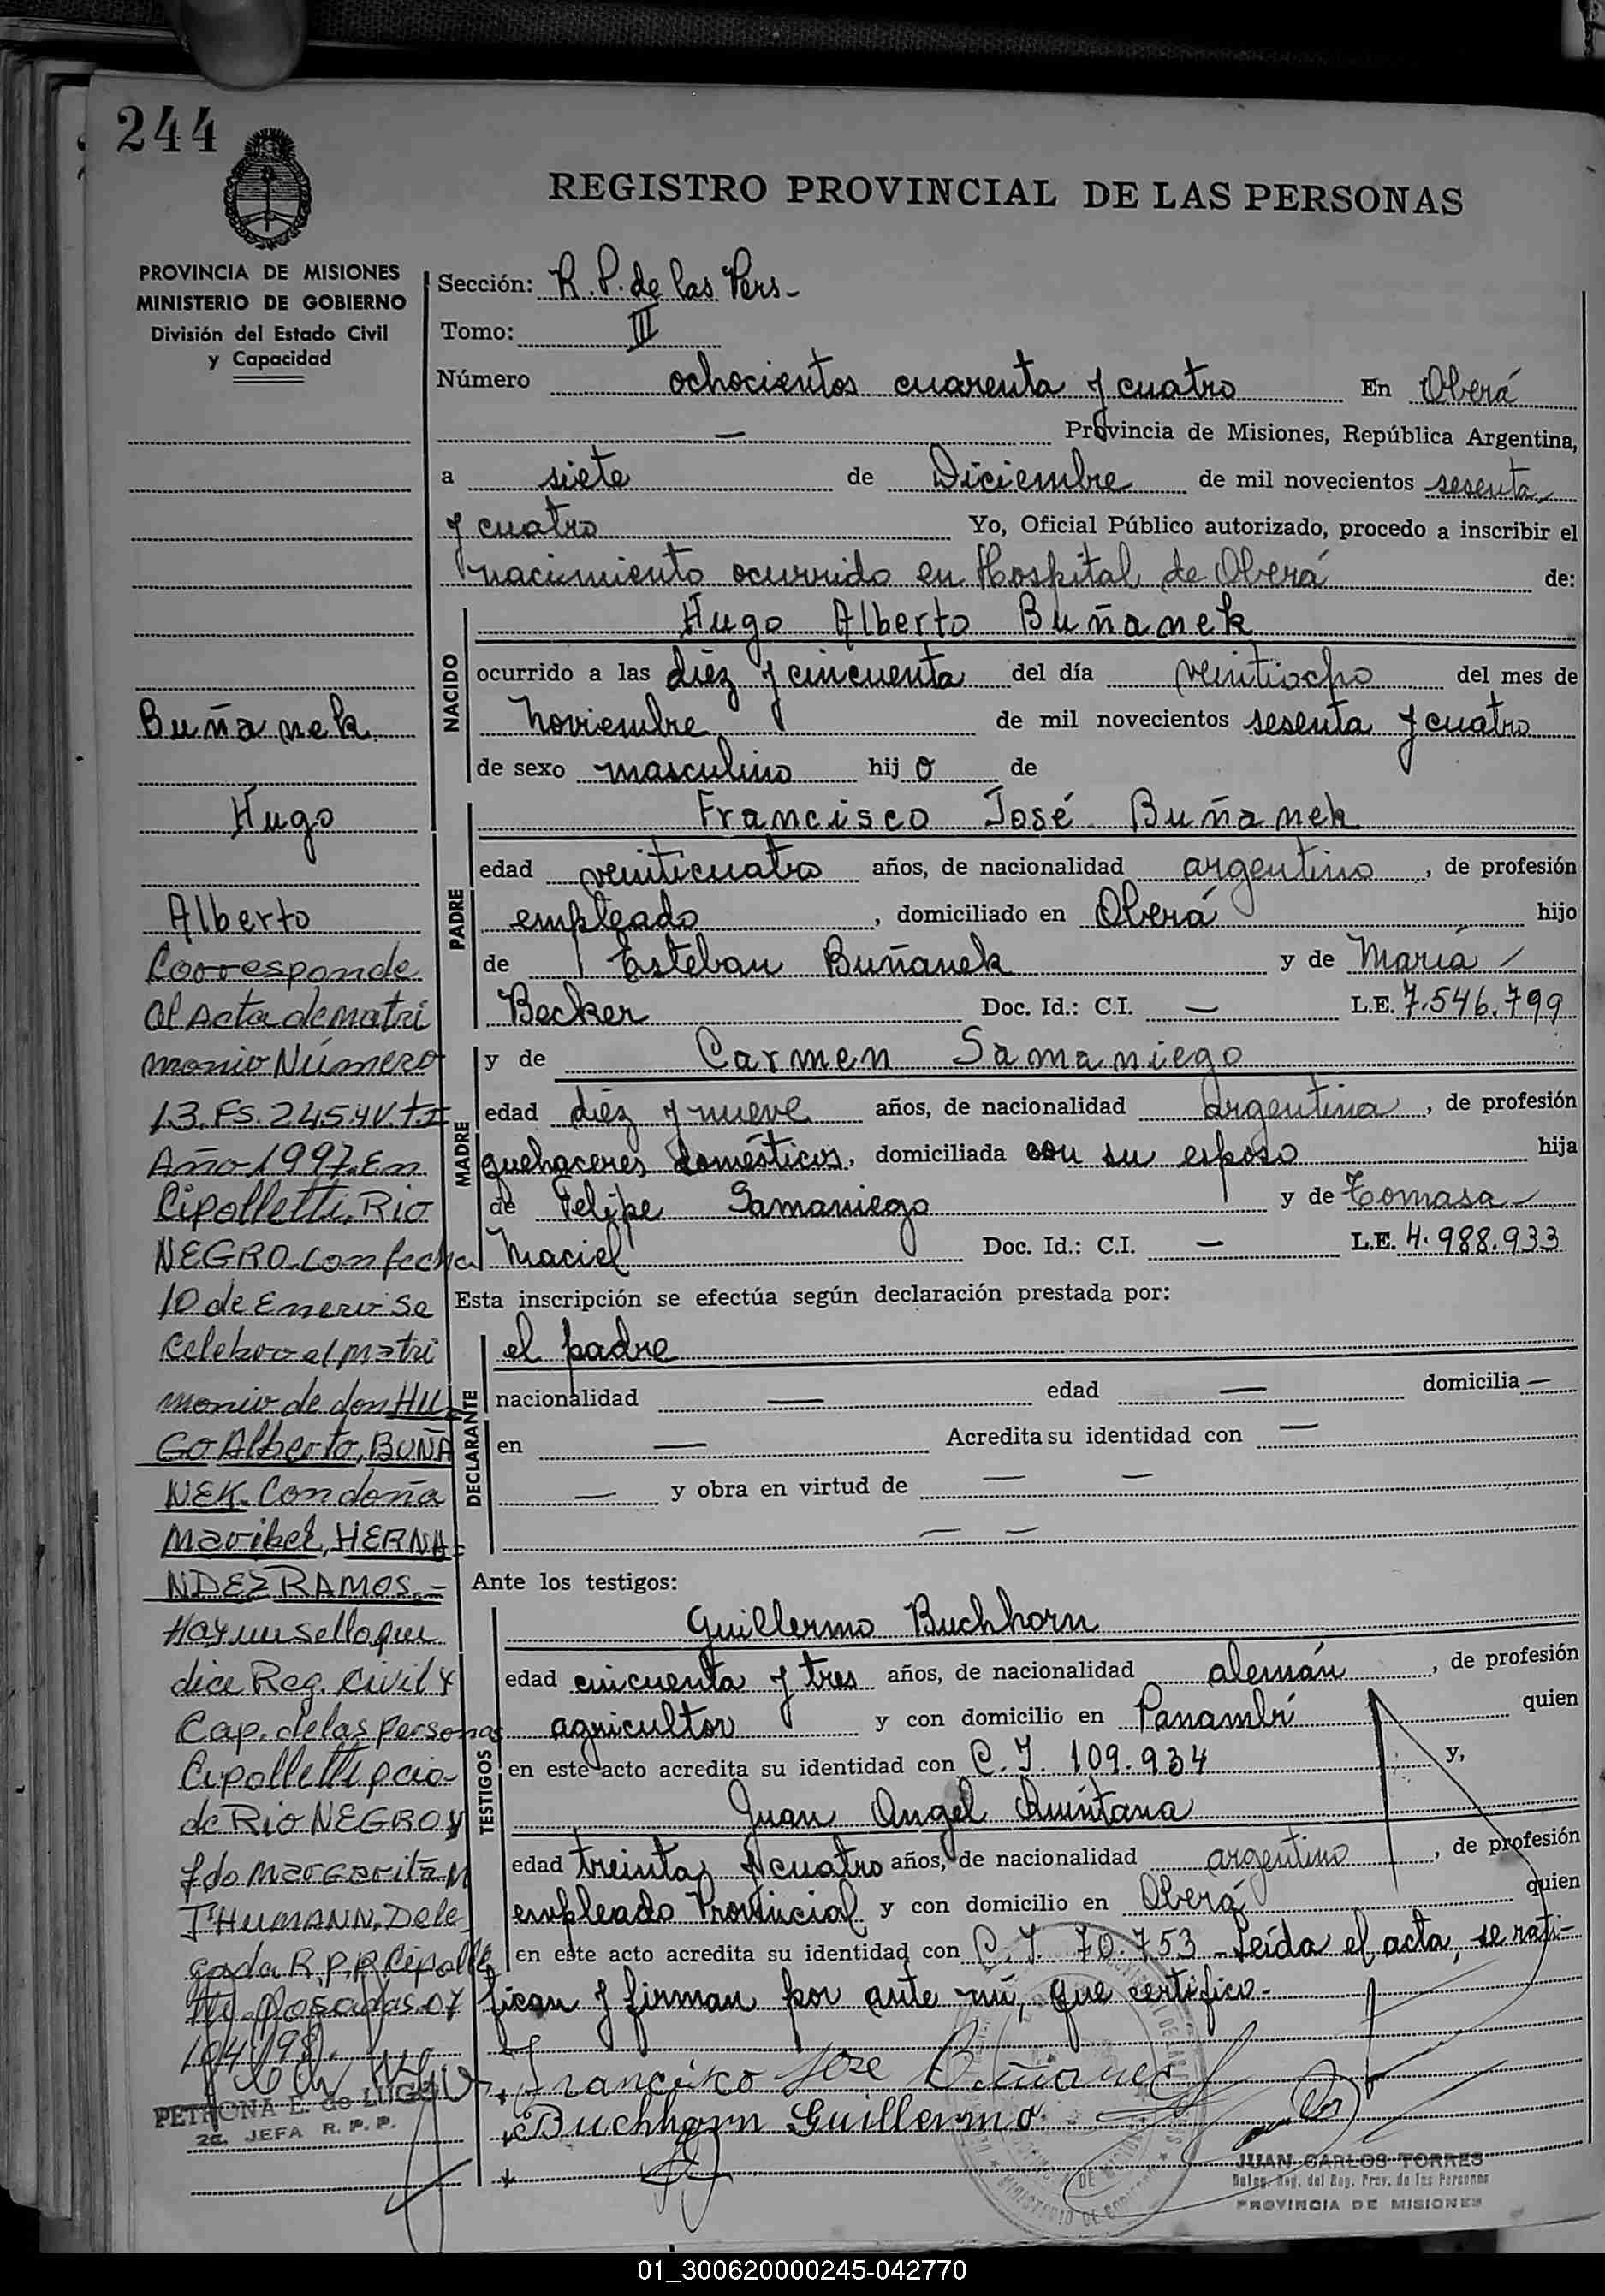 244
REGISTRO PROVINCIAL DE LAS PERSONAS
PROVINCIA DE MISIONES
MINISTERIO DE GOBIERNO
División del Estado Civil
y Capacidad
Sección: R. P. de las Pers-
Tomo: III
Número ochocientos cuarenta y cuatro En Oberá
— Provincia de Misiones, República Argentina,
a siete de Diciembre de mil novecientos sesenta
y cuatro Yo, Oficial Público autorizado, procedo a inscribir el
nacimiento ocurrido en Hospital de Oberá de:
NACIDO
Hugo Alberto Buñanek
ocurrido a las diéz y cincuenta del día veintiocho del mes de
Noviembre de mil novecientos sesenta y cuatro
de sexo masculino hij o de
PADRE
Francisco José Buñanek
edad veinticuatro años, de nacionalidad argentino, de profesión
empleado, domiciliado en Oberá hijo
de Esteban Buñanek y de María
Becker Doc. Id.: C.I. — L.E. 7.546.799
MADRE
y de Carmen Samaniego
edad diéz y nueve años, de nacionalidad argentina, de profesión
quehaceres domésticos, domiciliada con su esposo hija
de Felipe Samaniego y de Tomasa
Maciel Doc. Id.: C.I. — L.E. 4.988.933
Esta inscripción se efectúa según declaración prestada por:
DECLARANTE
el padre
nacionalidad — edad — domicilia —
en — Acredita su identidad con —
— y obra en virtud de — —
— —
Ante los testigos:
TESTIGOS
Guillermo Buchhorn
edad cincuenta y tres años, de nacionalidad alemán, de profesión
agricultor y con domicilio en Panambí quien
en este acto acredita su identidad con C. I. 109.934 y,
Juan Angel Quintana
edad treinta y cuatro años, de nacionalidad argentino, de profesión
empleado Provincial y con domicilio en Oberá quien
en este acto acredita su identidad con C. I. 70.753 - Leída el acta, se rati-
fican y firman por ante mí, que certifico.-
Francisco Jose Buñanek
Buchhorn Guillermo
JUAN CARLOS TORRES
Deleg. Reg. del Reg. Prov. de las Personas
PROVINCIA DE MISIONES
Buñanek
Hugo
Alberto
Corresponde
al Acta de matri
monio Número
13. FS. 245.4V. t. I
Año 1997. En
Cipolletti, Rio
NEGRO con fecha
10 de Enero se
Celebro el matri
monio de don HU
GO Alberto, BUÑA
NEK. Con doña
Maribel, HERNA=
NDEZ RAMOS.=
Hay un sello que
dice Reg. Civil y
Cap. de las Personas
Cipolletti pcia-
de Rio NEGRO y
fdo Margarita M
THUMANN. Dele
gada R.P.P. Cipolle
tti. Posadas. 07
/04/98.
PETRONA E. de LUGO
2a. JEFA R. P. P.
01_300620000245-042770